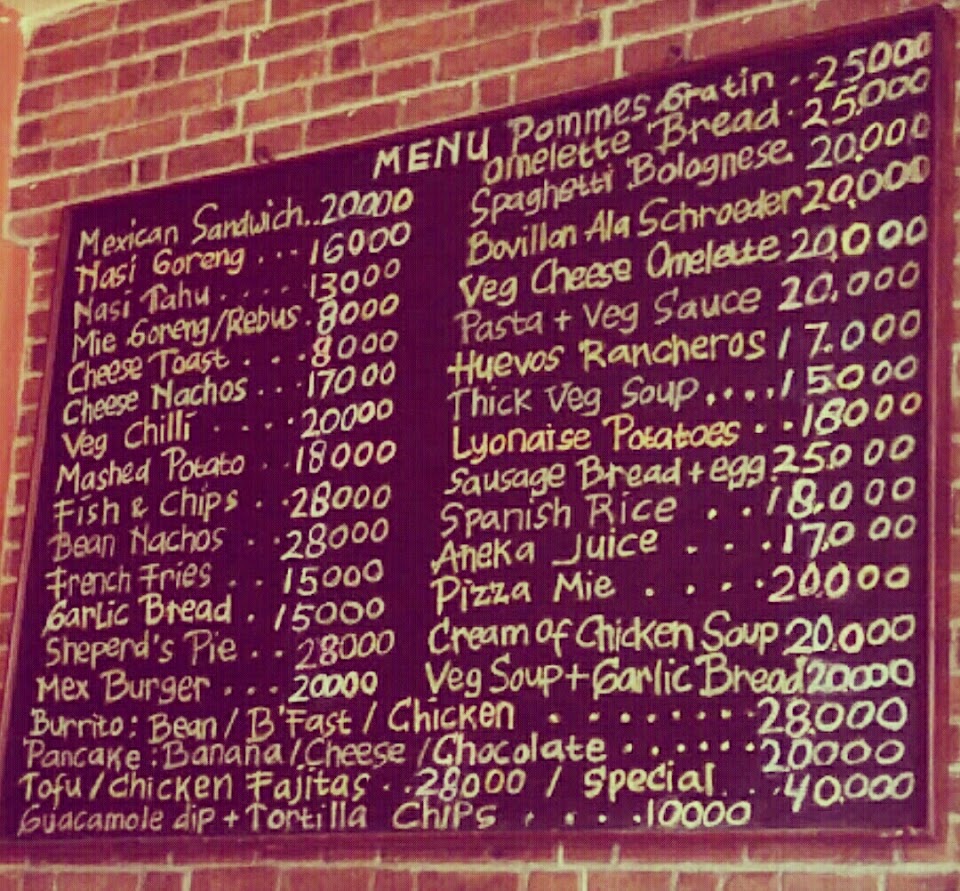 MENU
Mexican Sandwich..20000
Nasi Goreng...16000
Nasi Tahu.....13000
Mie Goreng/Rebus.8000
Cheese Toast...8000
Cheese Nachos...17000
Veg Chilli....20000
Mashed Potato..18000
Fish & Chips..28000
Bean Nachos..28000
French Fries..15000
Garlic Bread.15000
Sheperd's Pie..28000
Mex Burger...20000
Pommes Gratin..25000
Omelette Bread.25.000
Spaghetti Bolognese.20.000
Bovillan Ala Schroeder 20,000
Veg Cheese Omelette 20,000
Pasta + Veg Sauce 20.000
Huevos Rancheros 17.000
Thick Veg Soup....15000
Lyonaise Potatoes..18000
Sausage Bread + egg.25.000
Spanish Rice..18,000
Aneka Juice...17.000
Pizza Mie....20.000
Cream Of Chicken Soup 20.000
Veg Soup + Garlic Bread 20000
Burrito: Bean / B'Fast / Chicken ........28.000
Pancake: Banana / Cheese / Chocolate ......20000
Tofu / Chicken Fajitas..28000 / Special..40.000
Guacamole dip + Tortilla Chips ....10000